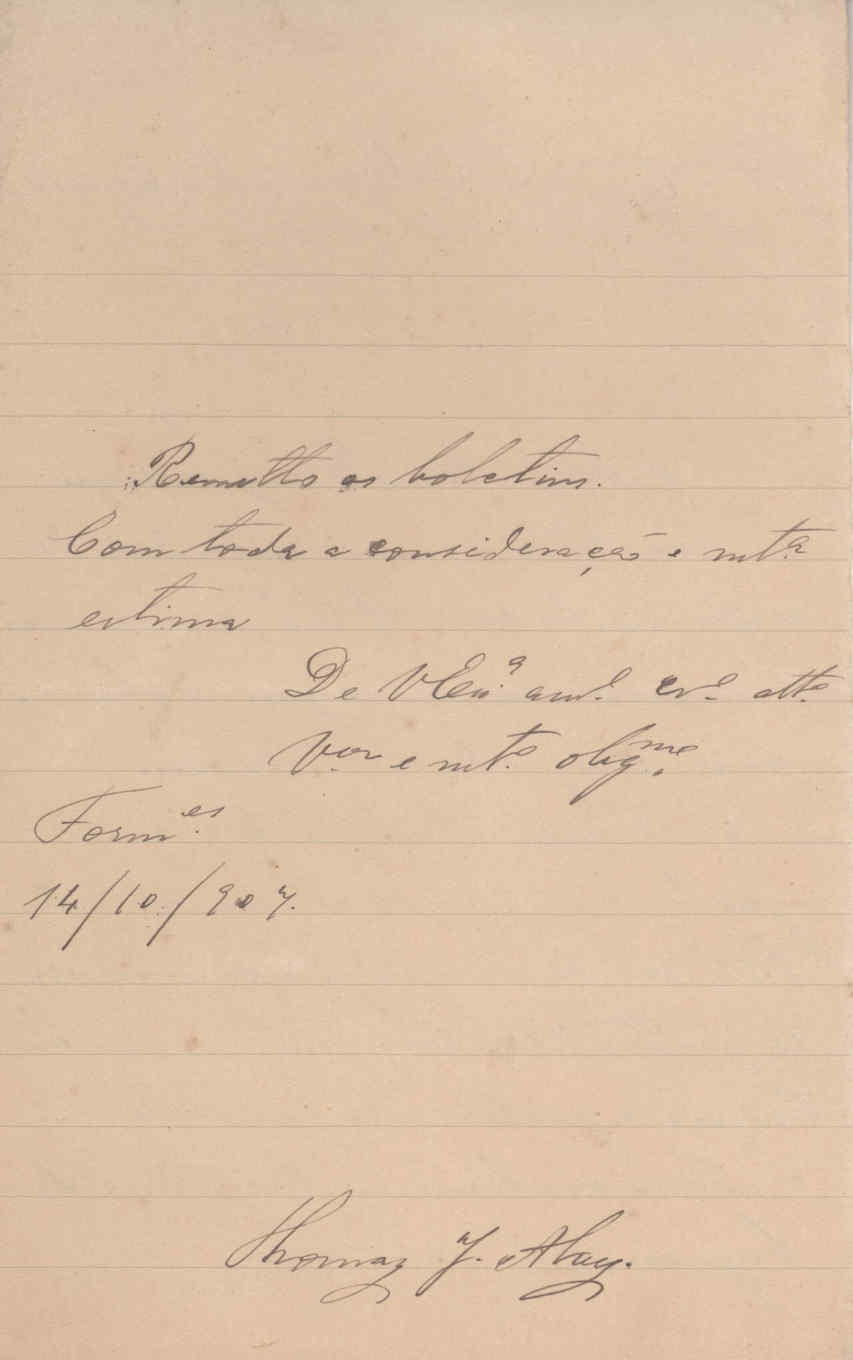 Remetto os boletins.
Com toda a consideração e mtª
estima
De V Exª amº crº attº
Vor e mtº obigmo
Form.es
14/10/907.
Thomaz J. Alay.